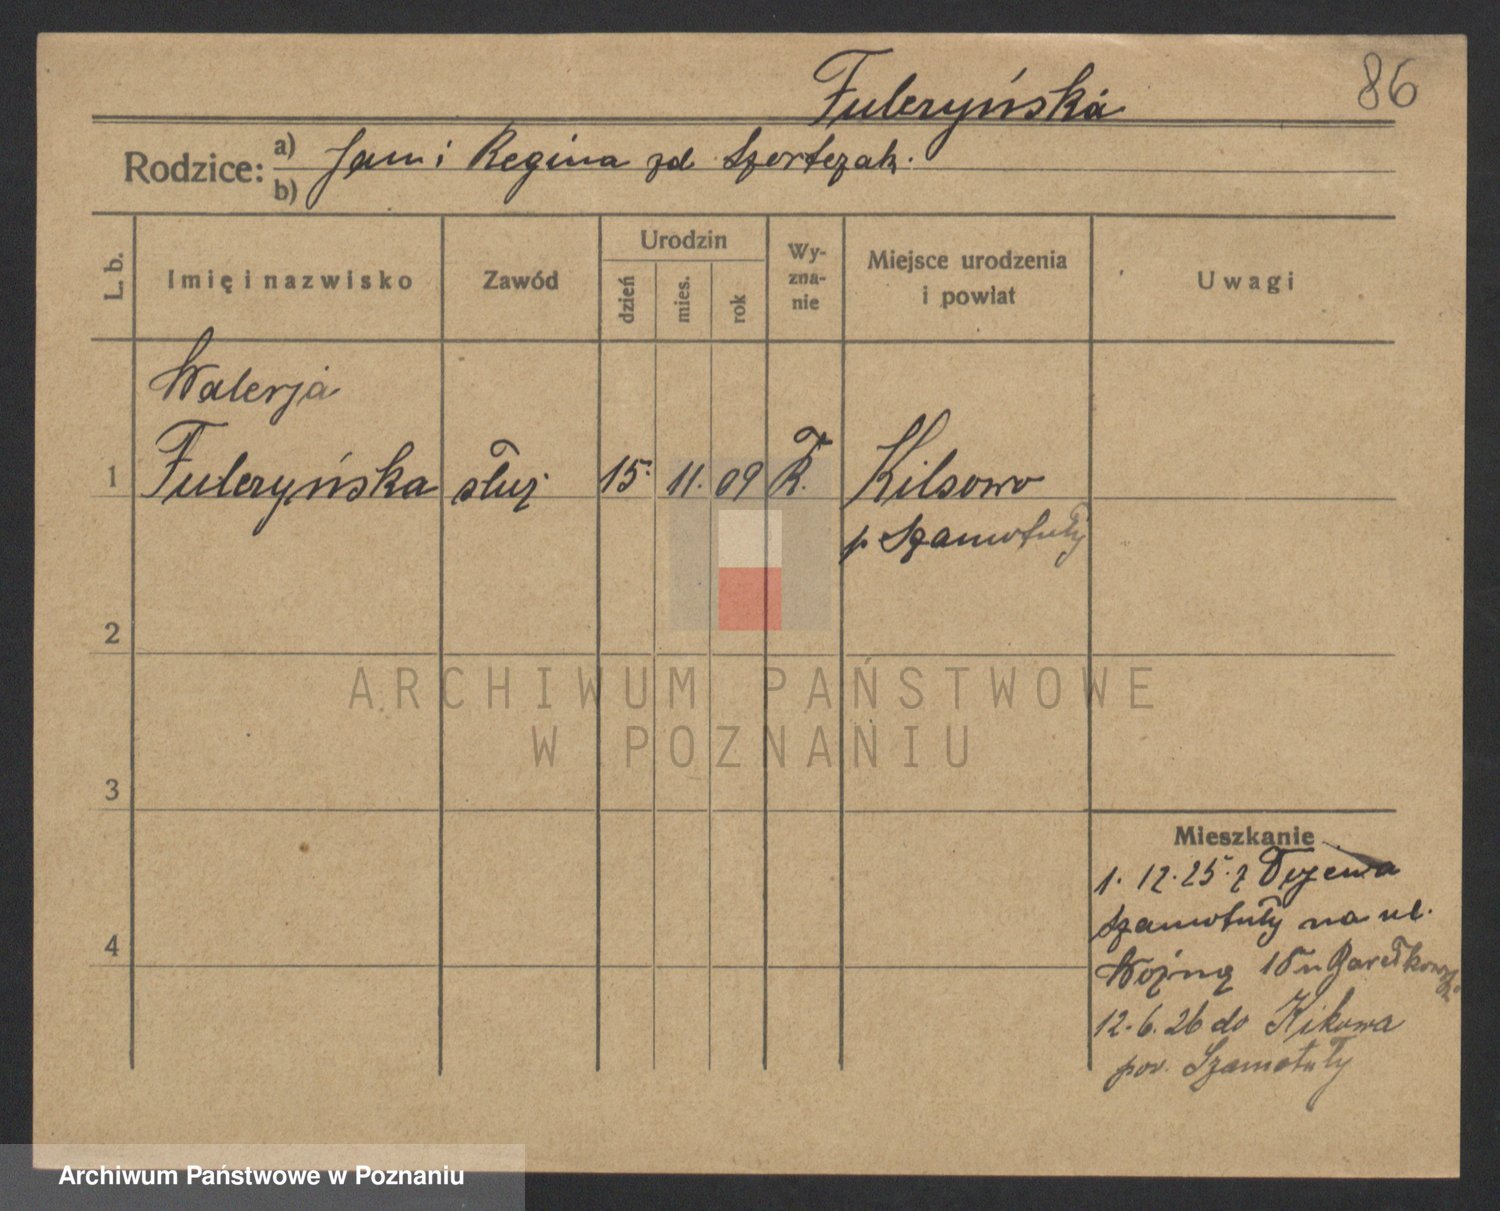 86
Fulczyńska
Rodzice: a) Jan i Regina zd Szortczak.
b)
L. b. Imię i nazwisko Zawód Urodzin dzień mies. rok Wy-zna-nie Miejsce urodzenia i powiat Uwagi
Walerja
1 Fulczyńska służ 15. 11. 09 R. K Kilsowo
p Szamotuły
2
ARCHIWUM PAŃSTWOWE
W POZNANIU
3
Mieszkanie
1. 12. 25. z
Szamotuły na ul.
4
12. 6. 26 do Kikowa
pow. Szamotuły
Archiwum Państwowe w Poznaniu